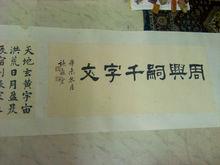 周興嗣千字文
天地玄黃宇宙
洪荒日月盈昃
辰宿列張